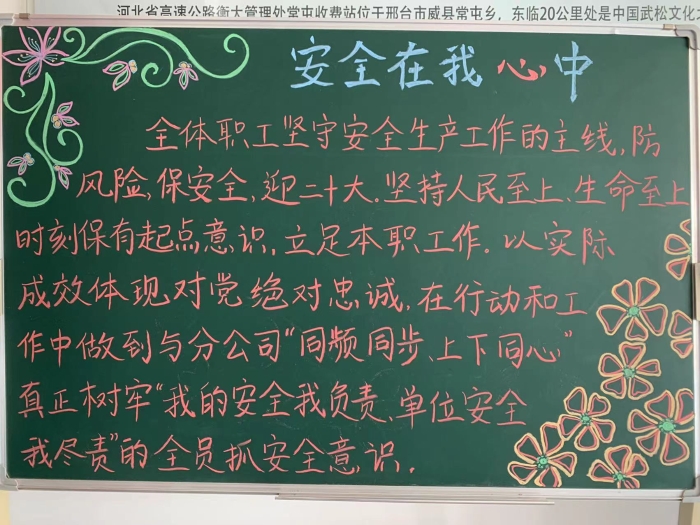 河北省高速公路衡大管理处常屯收费站位于邢台市威县常屯乡，东临20公里处是中国武松文化
安全在我心中
全体职工坚守安全生产工作的主线，防
风险，保安全，迎二十大。坚持人民至上、生命至上
时刻保有起点意识，立足本职工作。以实际
成效体现对党绝对忠诚，在行动和工
作中做到与分公司“同频同步、上下同心”
真正树牢“我的安全我负责、单位安全
我尽责”的全员抓安全意识。